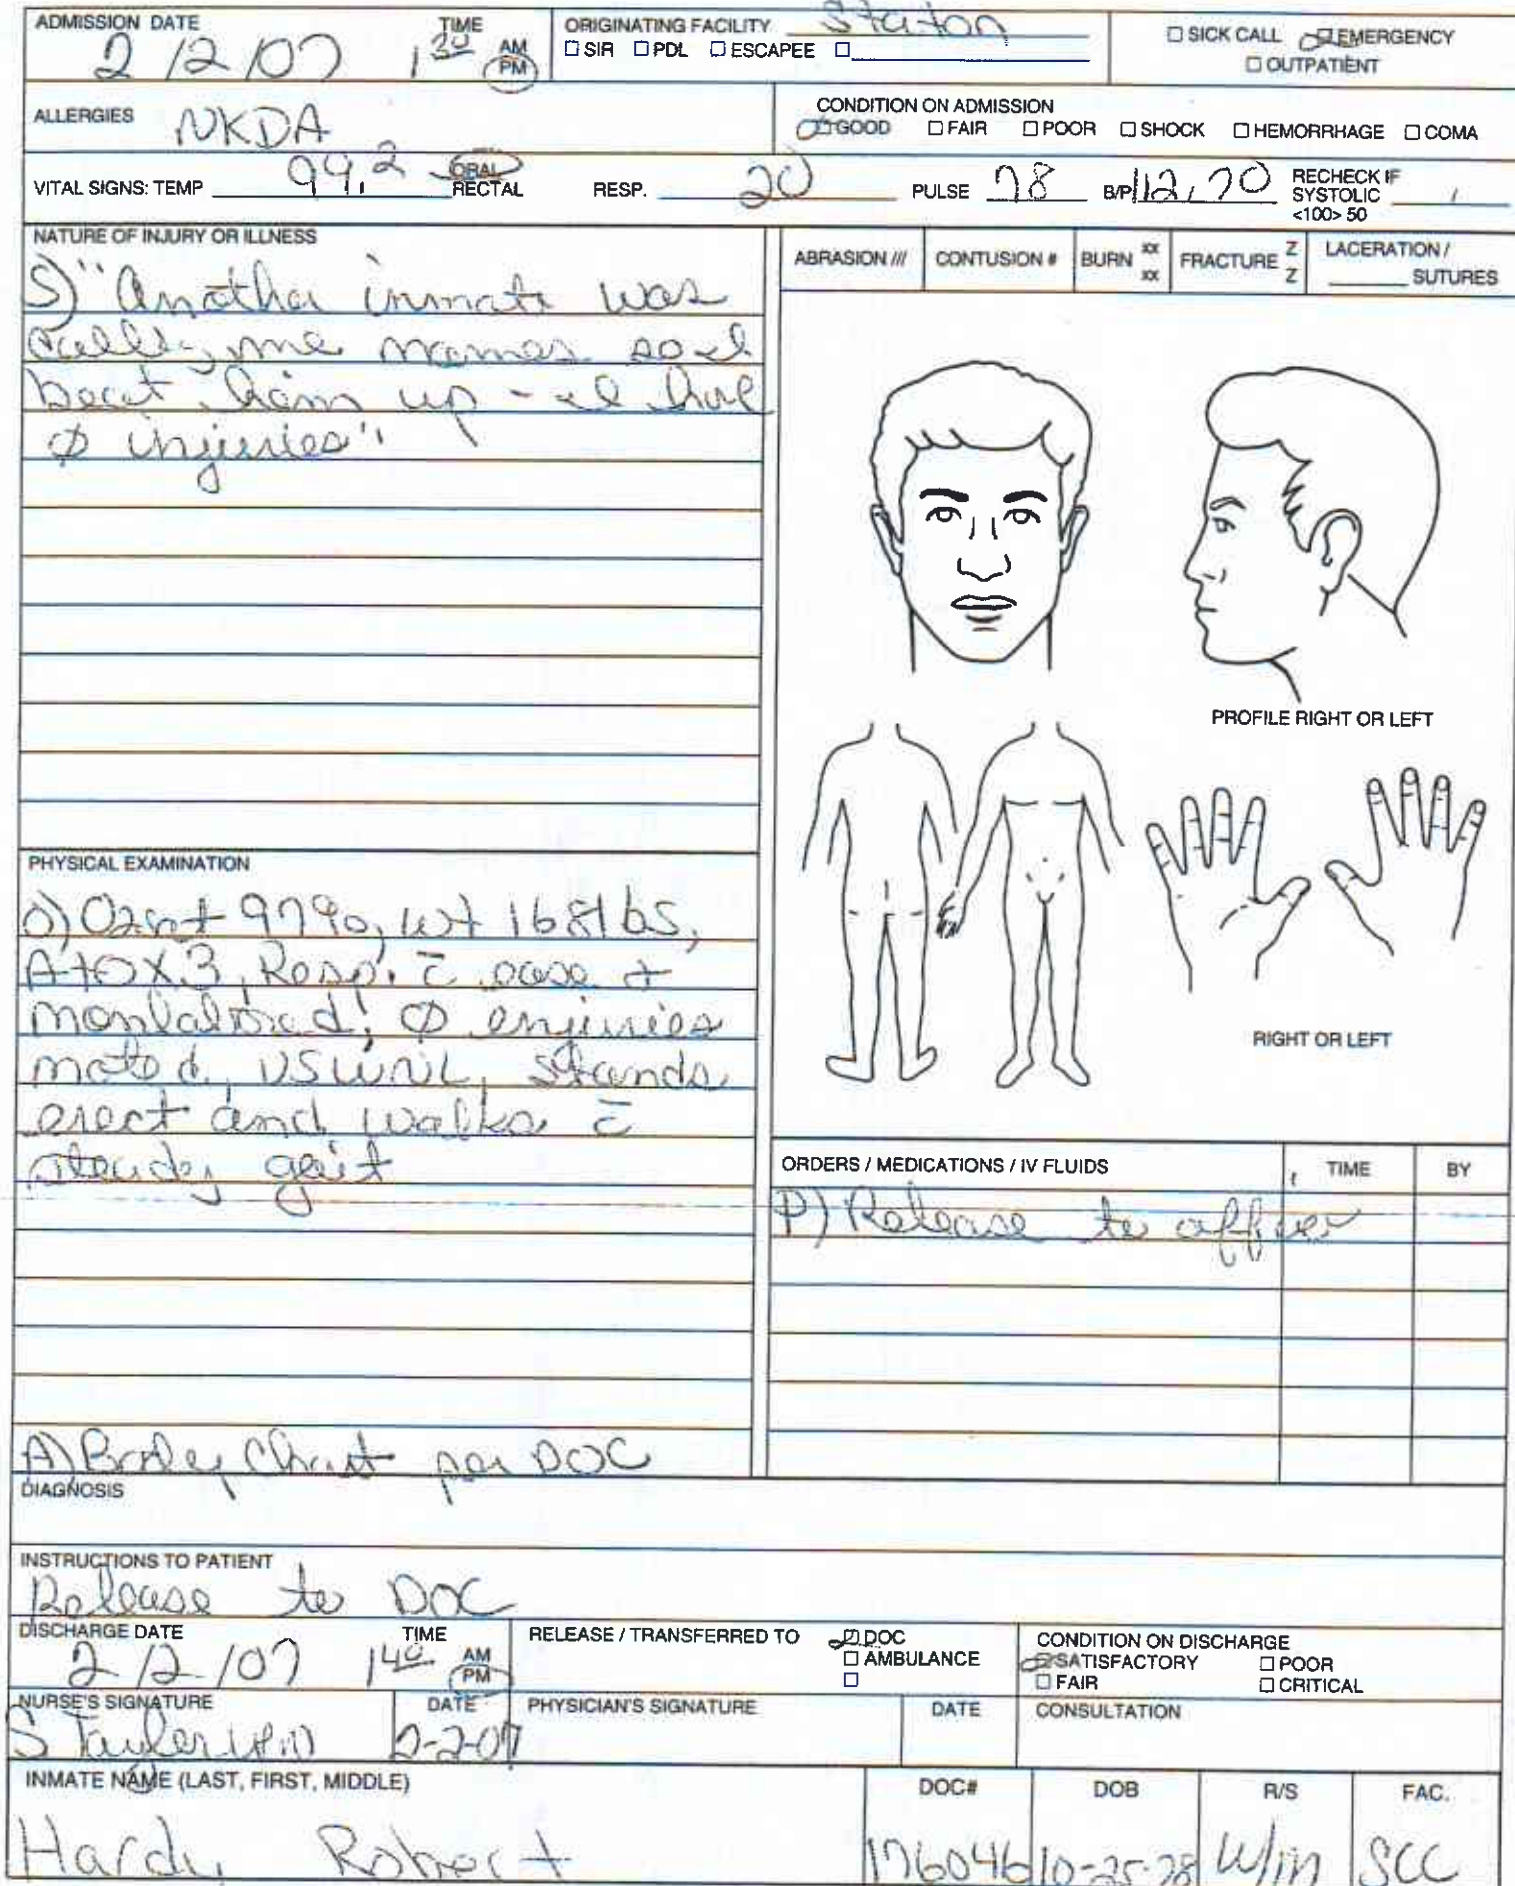 ADMISSION DATE TIME ORIGINATING FACILITY Staton
2/2/07 1 30 AM PM □ SIR □ PDL □ ESCAPEE □ □ SICK CALL □ EMERGENCY
□ OUTPATIENT
ALLERGIES NKDA CONDITION ON ADMISSION
□ GOOD □ FAIR □ POOR □ SHOCK □ HEMORRHAGE □ COMA
VITAL SIGNS: TEMP 99.2 ORAL RECTAL RESP. 20 PULSE 78 B/P 112/70 RECHECK IF SYSTOLIC <100> 50 /
NATURE OF INJURY OR ILLNESS
S) "Another inmate was
calling me names so I
beat him up - I have
Ø injuries"
ABRASION /// CONTUSION # BURN xx xx FRACTURE Z Z LACERATION / SUTURES
PROFILE RIGHT OR LEFT
RIGHT OR LEFT
PHYSICAL EXAMINATION
O) O2sat 97%, wt 168lbs,
A+OX3, Resp. c̄ ease +
nonlabored, Ø injuries
noted, VSWNL, Stands
erect and walks c̄
steady gait
A) Body Chart per DOC
ORDERS / MEDICATIONS / IV FLUIDS TIME BY
P) Release to officer
DIAGNOSIS
INSTRUCTIONS TO PATIENT
Release to DOC
DISCHARGE DATE TIME RELEASE / TRANSFERRED TO ☑ DOC CONDITION ON DISCHARGE
2/2/07 1 40 AM PM □ AMBULANCE ☑ SATISFACTORY □ POOR
□ □ FAIR □ CRITICAL
NURSE'S SIGNATURE DATE PHYSICIAN'S SIGNATURE DATE CONSULTATION
S 2-2-07
INMATE NAME (LAST, FIRST, MIDDLE) DOC# DOB R/S FAC.
Hardy Robert 176046 10-25-78 W/m SCC